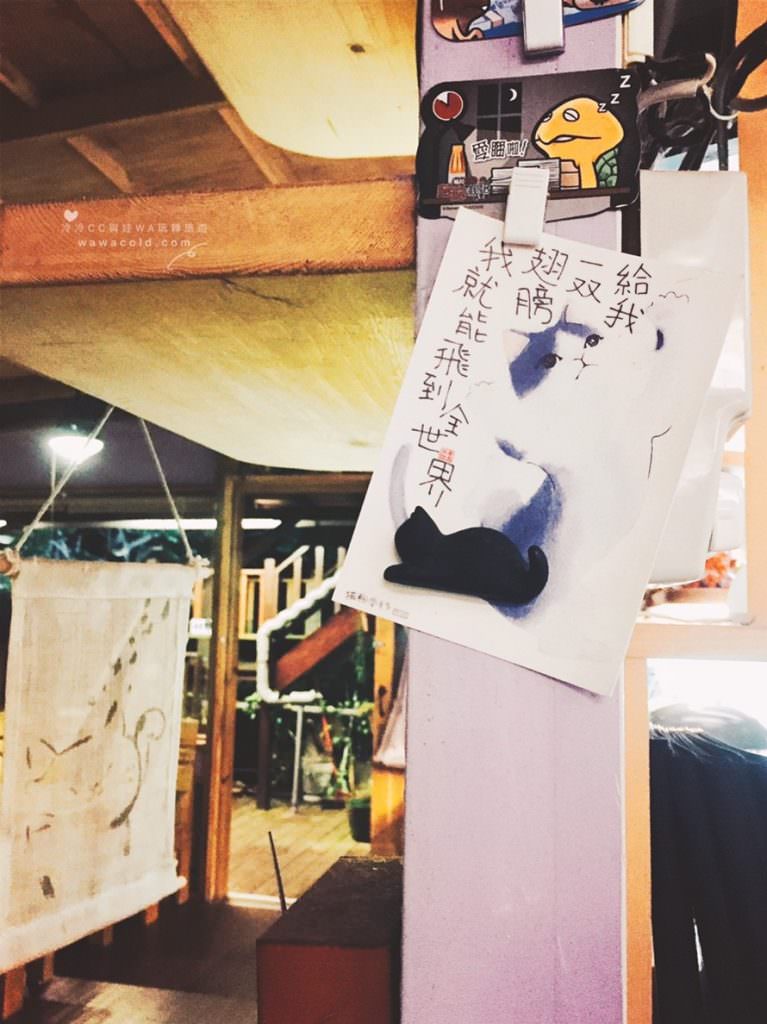 Z Z Z
愛睏啦!
給我
一双
翅膀
我
就能飛到全世界
冷冷CC與娃WA玩轉旅遊
wawacold.com